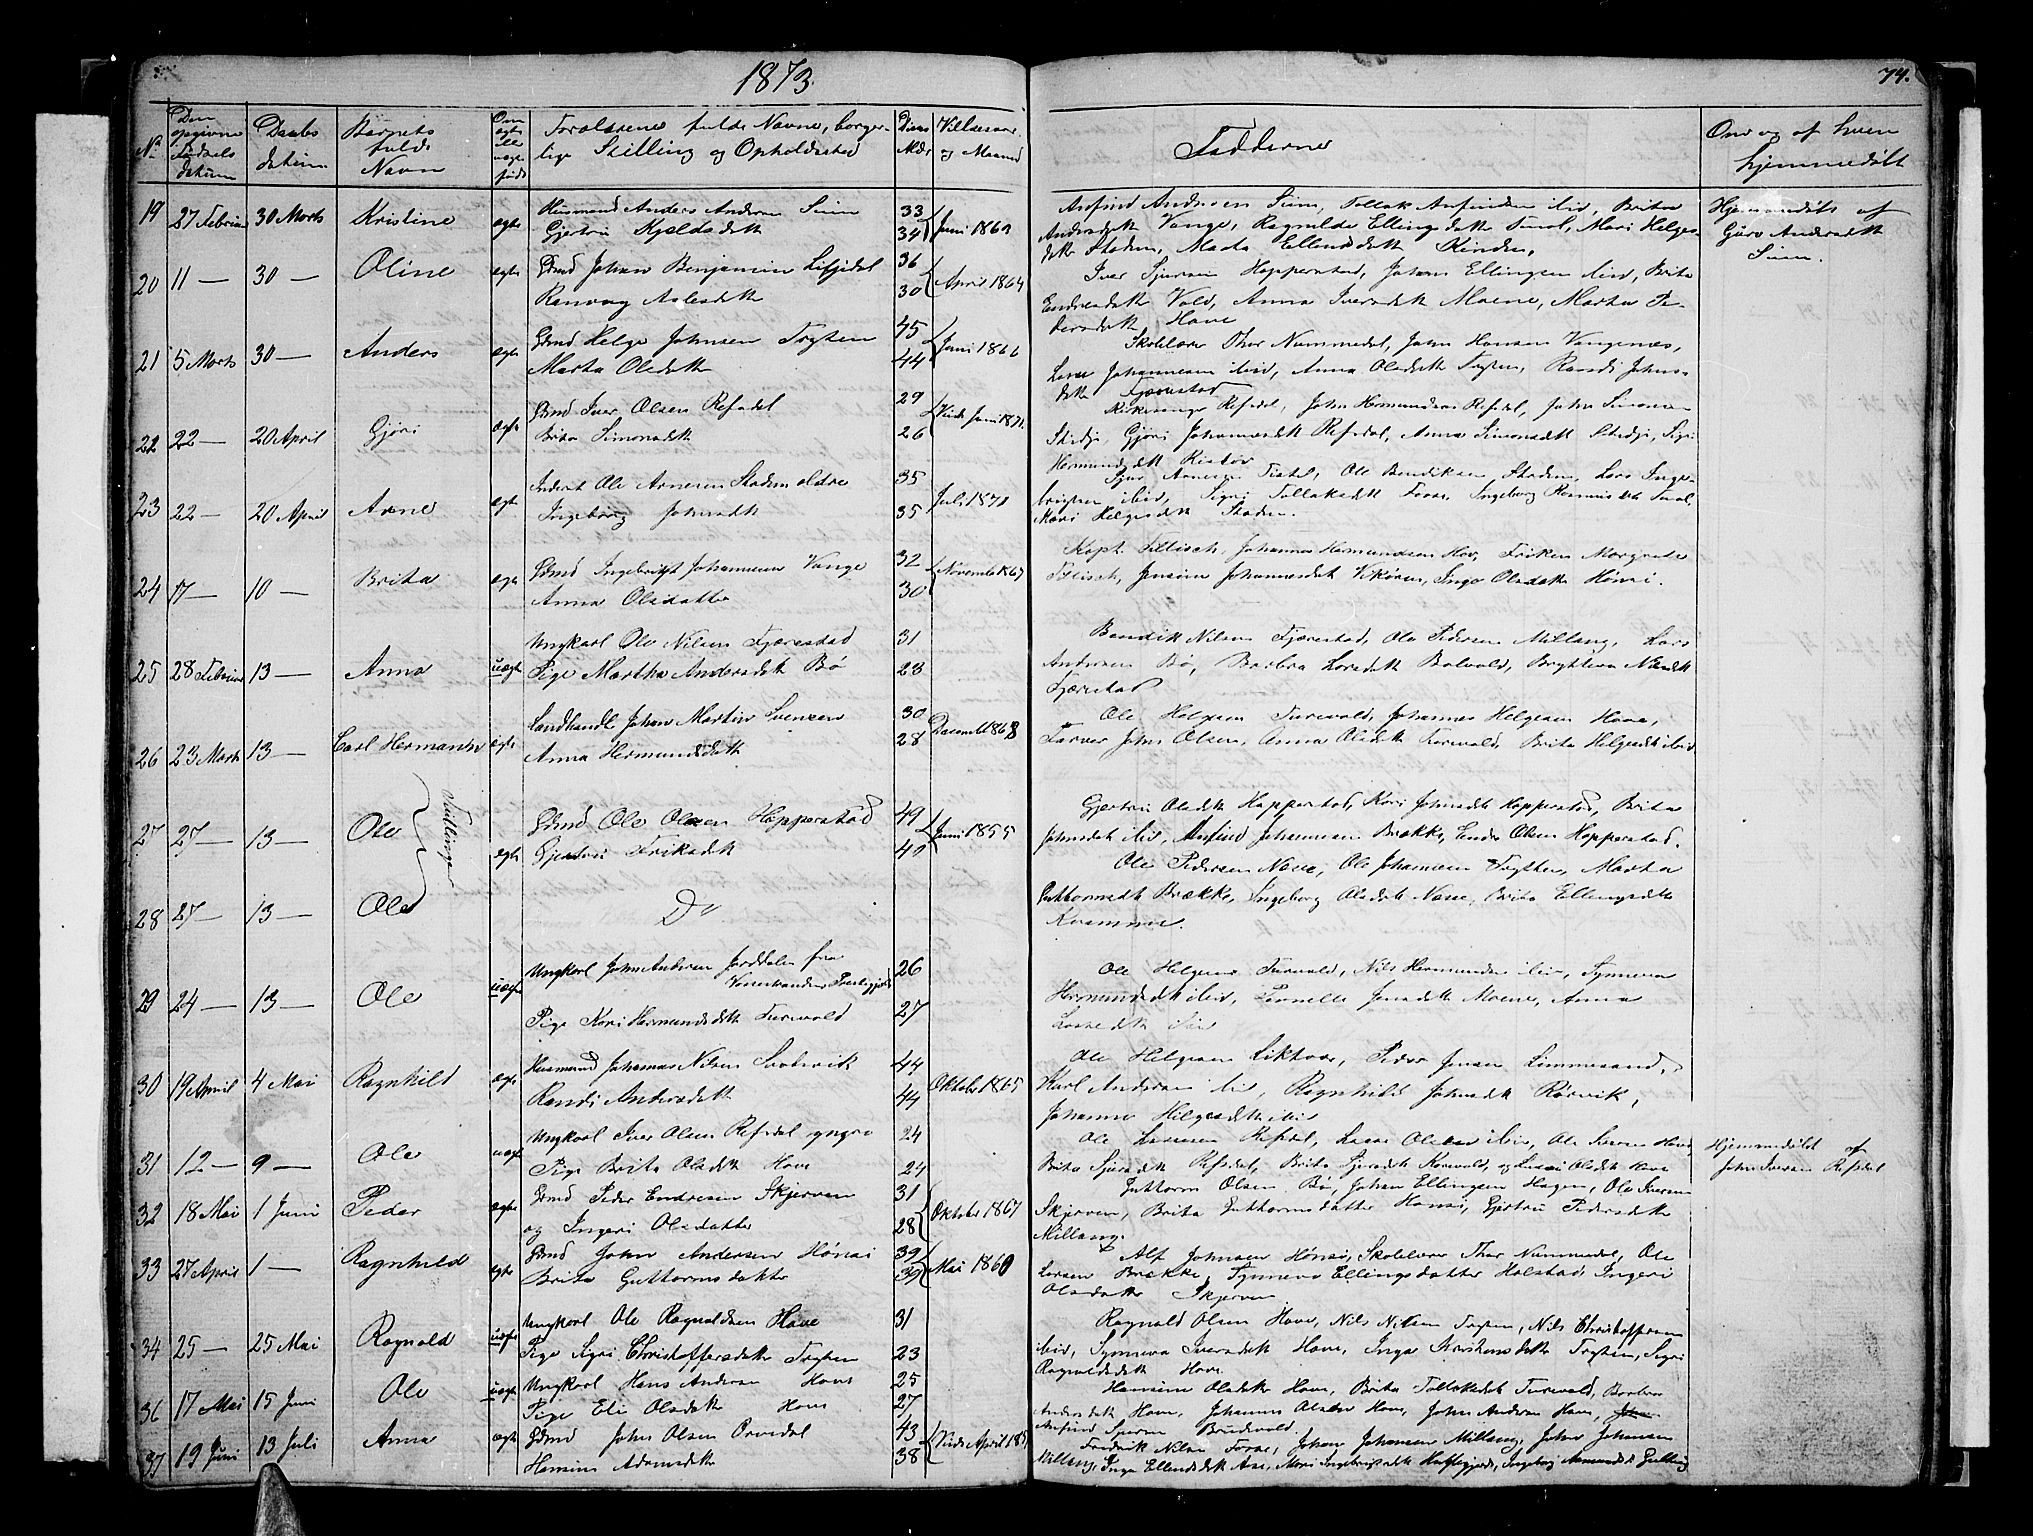 1873.
74.
No
Den opgivne Fødselsdatum
Daabsdatum
Barnets fulde Navn
Om ægte ell. uægte født
Forældrenes fulde Navne, borgerlige Stilling og Opholdssted
Deres Alder
Vielsesaar og Maaned
Fadderne
Om og af hvem hjemmedøbt
19 27 Februar 30 Marts Kristine ægte Husmand Anders Andersen Sum 33
Gjertru Kjeldsdatt 34 Juni 1869
Anfind Andersen Sum, Tollak Anfindsen ibid, Brita
Andersdatt Vange, Ragnilde Ellingsdatt Tenol, Mari Helges-
datt Staden, Marta Ellendsdatt Rinden,
Hjemmedøbt af
Guro Andersdatt
Sum.
20 11 — 30 — Oline ægte Gbmd Johan Benjamin Lifjedal 36
Ranveig Aslesdatt 30 April 1864
Iver Sjursen Hopperstad, Johan Ellingsen ibid, Brita
Endresdatt Vold, Anna Iversdatt Moene, Marta Pe-
dersdatt Hove
21 5 Marts 30 — Anders ægte Gbmd Helge Johnsen Tryten 45
Marta Olsdatt 44 Juni 1866
Skolelærer Thor Nummedal, John Hansen Vangenæs,
Lasse Johannesen ibid, Anna Olsdatt Tryten, Randi Johns-
datt Fjærestad
22 22 — 20 April Gjøri ægte Gbmd Iver Olsen Refsdal 29
Brita Simonsdatt 26 Vinde Juni 1871.
Kirkesanger Refsdal, John Hermundsen Refsdal, John Simonsen
Stedje, Gjøri Johannesdatt Refsdal, Anna Simonsdatt Stedje, Sigri
Hermundsdatt
23 22 — 20 April Arne ægte Inderst Ole Arnesen Stadem ældre 35
Ingeborg Johnsdatt 35 Juli 1871
Sjur Arnesen Tistel, Ole Bendiksen Staden, Lars Inge-
brigtsen ibid, Sigri Tollaksdatt Fosse, Ingeborg Rasmusdatt Tenol
Mari Helgesdatt Staden.
24 17 — 10 — Brita ægte Gbmd Ingebrigt Johannesen Vange 32
Anna Olsdatter 30 November 1867
Kapt. Fritisch, Johannes Hermundsen Hov, Friken Margrete
Fritisch, Jensine Johannesdatt Vikøren, Inga Olsdatter Hønsi.
25 28 Februar 13 — Anna uægte Ungkarl Ole Nilsen Fjærestad 31
Pige Martha Andersdatt Bø 23
Bendik Nilsen Fjærestad, Ole Pedersen Millang, Lars
Andersen Bø, Barbra Larsdatt Bolvold, Brytheva Nilsdatt
Fjærestad
26 23 Marts 13 — Carl Hermann ægte Landhandler Johan Martin Svensen 30
Anna Hermundsdatt 28 December 1868
Ole Helgesen Turvold, Johannes Helgesen Hove,
Farver John Olsen, Anna Olsdatt Turvold, Brita Helgesdatt ibid
27 27 — 13 — Ole Tvillinger ægte Gbmd Ole Olsen Hopperstad 49
Gjertru Eriksdatt 40 Juni 1855
Gjertru Olsdatt Hopperstad, Kari Johnsdatt Hopperstad, Brita
Johnsdatt ibid, Anfind Johannesen Brække, Endre Olsen Hopperstad.
28 27 — 13 — Ole Do
Ole Pedersen Næse, Ole Johannesen Tryten, Marta
Guttormsdatt Brække, Ingeborg Olsdatt Næse, Brita Ellingsdatt
29 24 — 13 — Ole uægte Ungkarl John Andersen Jorddalen fra 26
Vossestrandens Præstegjeld
Pige Kari Hermundsdatt Turvold 27
Ole Helgesen Turvold, Nils Hermundsen ibid, Synneva
Hermundsdatt ibid, Pernelle Jensdatt Moene, Anna
Lassedatt ibid
30 19 April 4 Mai Ragnhild ægte Husmand Johannes Nilsen 44
Randi Andersdatt 44 Oktober 1865
Ole Helgesen Liktvor, Peder Jensen Limmesand,
Karl Andersen ibid, Ragnhild Johnsdatt Rørvik,
Johanne Helgesdatt ibid
31 12 — 9 — Ole uægte Ungkarl Iver Olsen Refsdal yngre 24
Pige Brita Olsdatt Hove 24
Ole Lassesen Refsdal, Lasse Olsen ibid, Ole Iversen Hove,
Brita Sjursdatt Refsdal, Brita Sjursdatt Korvold, og Olsdatt Hove
Hjemmedøbt af
John Iversen Refsdal
32 18 Mai 1 Juni Peder ægte Gbmd Peder Endresen Skjerven 31
og Ingeri Olsdatter 28 Oktober 1867
Guttorm Olsen Bø, Johan Ellingsen Hagen, Ole Iversen
Skjerven, Brita Guttormsdatter Hønsi, Gjertru Pedersdatt
Millang.
33 27 April 1 — Ragnhild ægte Gbmd John Andersen Hønsi 39
Brita Guttormsdatter 39 Mai 1860
Alf Johnsen Hønsi, Skolelærer Thor Nummedal, Ole
Larsen Brække, Synneva Ellingsdatter Holstad, Ingeri
Olsdatter Skjerven
34 25 — 25 Mai Ragnald uægte Ungkarl Ole Ragnaldsen Hove 31
Pige Sigri Christoffersdatt Tryten 23
Ragnald Olsen Hove, Nils Nilsen Tryten, Nils Christoffersen
ibid, Synneva Iversdatt Hove, Inga Kristensdatt Tryten, Sigri
Ragnaldsdatt Hove
36 17 Mai 15 Juni Ole uægte Ungkarl Hans Andersen Hove 25
Pige Eli Olsdatt Hove 27
Hansine Olsdatt Hove, Brita Tollaksdatt Turvold, Barbra
Andersdatt Hove, Johannes Olsen Hove, John Andersen Hove,
Anfind Sjursen Brudvold.
37 19 Juni 13 Juli Anna ægte Gbmd John Olsen Orvedal 43
Hansine Adamsdatt 38 Vinde April 185
Fredrik Nilsen Fosse, Johan Johansen Millang, John Johansen
Millang, Inga Ellendsdatt Ase, Mari Ingebrigtsdatt Ingeborg Aamundsd